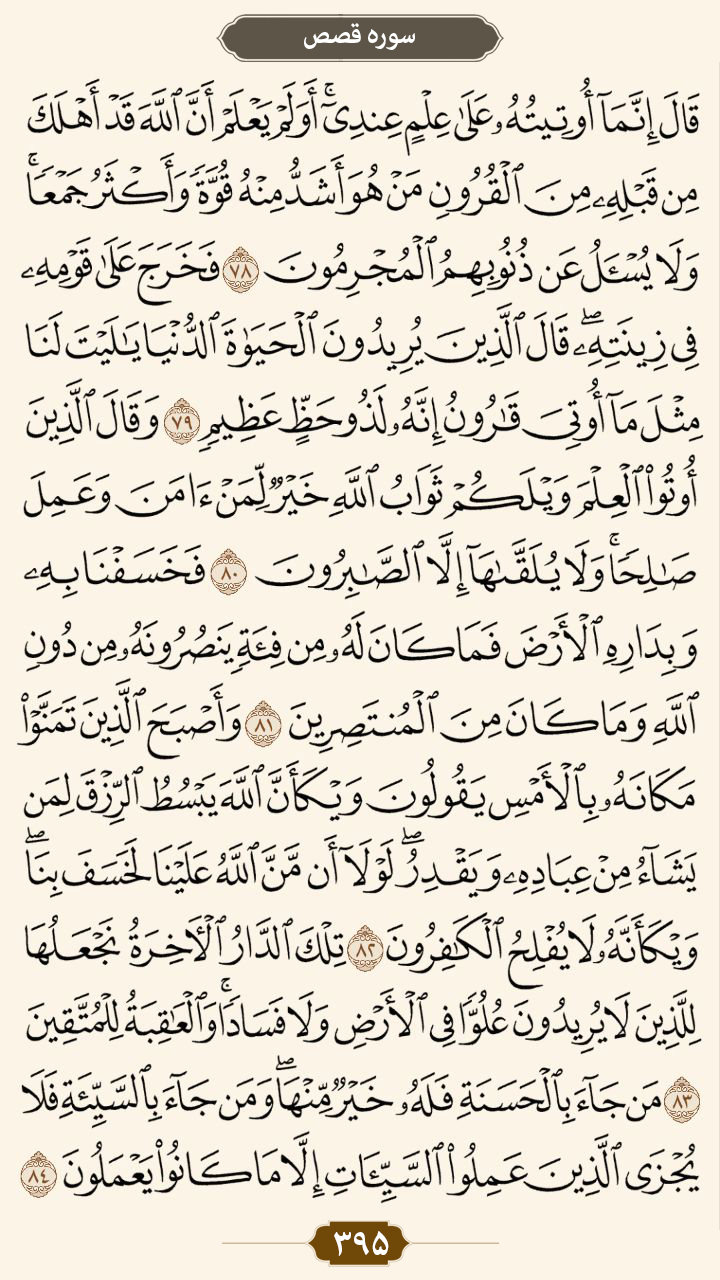 سوره قصص
قَالَ إِنَّمَآ أُوتِيتُهُۥ عَلَىٰ عِلْمٍ عِندِىٓ ۚ أَوَلَمْ يَعْلَمْ أَنَّ ٱللَّهَ قَدْ أَهْلَكَ
مِن قَبْلِهِۦ مِنَ ٱلْقُرُونِ مَنْ هُوَ أَشَدُّ مِنْهُ قُوَّةً وَأَكْثَرُ جَمْعًا ۚ
وَلَا يُسْـَٔلُ عَن ذُنُوبِهِمُ ٱلْمُجْرِمُونَ ٧٨ فَخَرَجَ عَلَىٰ قَوْمِهِۦ
فِى زِينَتِهِۦ ۖ قَالَ ٱلَّذِينَ يُرِيدُونَ ٱلْحَيَوٰةَ ٱلدُّنْيَا يَـٰلَيْتَ لَنَا
مِثْلَ مَآ أُوتِىَ قَـٰرُونُ إِنَّهُۥ لَذُو حَظٍّ عَظِيمٍ ٧٩ وَقَالَ ٱلَّذِينَ
أُوتُوا۟ ٱلْعِلْمَ وَيْلَكُمْ ثَوَابُ ٱللَّهِ خَيْرٌ لِّمَنْ ءَامَنَ وَعَمِلَ
صَـٰلِحًا ۚ وَلَا يُلَقَّىٰهَآ إِلَّا ٱلصَّـٰبِرُونَ ٨٠ فَخَسَفْنَا بِهِۦ
وَبِدَارِهِ ٱلْأَرْضَ فَمَا كَانَ لَهُۥ مِن فِئَةٍ يَنصُرُونَهُۥ مِن دُونِ
ٱللَّهِ وَمَا كَانَ مِنَ ٱلْمُنتَصِرِينَ ٨١ وَأَصْبَحَ ٱلَّذِينَ تَمَنَّوْا۟
مَكَانَهُۥ بِٱلْأَمْسِ يَقُولُونَ وَيْكَأَنَّ ٱللَّهَ يَبْسُطُ ٱلرِّزْقَ لِمَن
يَشَآءُ مِنْ عِبَادِهِۦ وَيَقْدِرُ ۖ لَوْلَآ أَن مَّنَّ ٱللَّهُ عَلَيْنَا لَخَسَفَ بِنَا ۖ
وَيْكَأَنَّهُۥ لَا يُفْلِحُ ٱلْكَـٰفِرُونَ ٨٢ تِلْكَ ٱلدَّارُ ٱلْـَٔاخِرَةُ نَجْعَلُهَا
لِلَّذِينَ لَا يُرِيدُونَ عُلُوًّا فِى ٱلْأَرْضِ وَلَا فَسَادًا ۚ وَٱلْعَـٰقِبَةُ لِلْمُتَّقِينَ
٨٣ مَن جَآءَ بِٱلْحَسَنَةِ فَلَهُۥ خَيْرٌ مِّنْهَا ۖ وَمَن جَآءَ بِٱلسَّيِّئَةِ فَلَا
يُجْزَى ٱلَّذِينَ عَمِلُوا۟ ٱلسَّيِّـَٔاتِ إِلَّا مَا كَانُوا۟ يَعْمَلُونَ ٨٤
۳۹۵